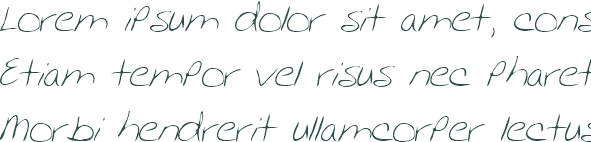 Lorem ipsum dolor sit amet, cons
Etiam tempor vel risus nec pharet
Morbi hendrerit ullamcorper lectus